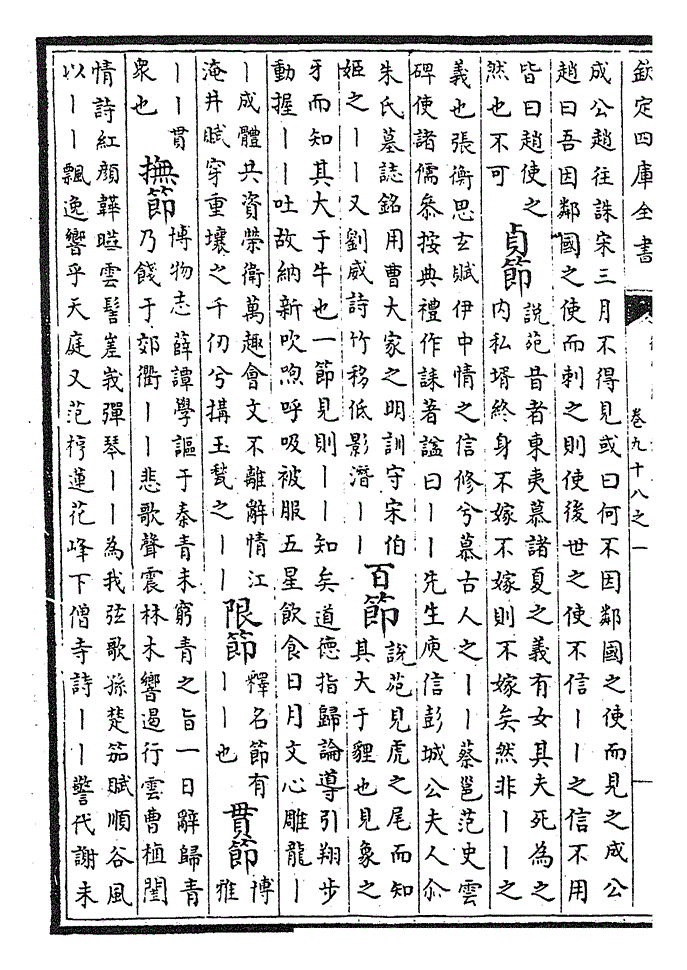 欽定四庫全書
卷九十八之一
成公趙往誅宋三月不得見或曰何不因鄰國之使而見之成公
趙曰吾因鄰國之使而刺之則使後世之使不信丨丨之信不用
皆曰趙使之
然也不可
貞節
説苑昔者東夷慕諸夏之義有女其夫死為之
内私壻終身不嫁不嫁則不嫁矣然非丨丨之
義也張衡思玄賦伊中情之信修兮慕古人之丨丨蔡邕范史雲
碑使諸儒叅按典禮作誄著諡曰丨丨先生庾信彭城公夫人尒
朱氏墓誌銘用曹大家之明訓守宋伯
姬之丨丨又劉威詩竹移低影潛丨丨
百節
説苑見虎之尾而知
其大于貍也見象之
牙而知其大于牛也一節見則丨丨知矣道德指歸論導引翔步
動握丨丨吐故納新吹呴呼吸被服五星飲食日月文心雕龍丨
丨成體共資榮衛萬趣會文不離辭情江
淹井賦穿重壤之千仞兮搆玉甃之丨丨
限節
釋名節有
丨丨也
貫節
博
雅
丨丨貫
衆也
撫節
博物志薛譚學謳于秦青未窮青之旨一日辭歸青
乃餞于郊衢丨丨悲歌聲震林木響遏行雲曹植閨
情詩紅顔韡曄雲髻嵳峩彈琴丨丨為我弦歌孫楚笳賦順谷風
以丨丨飄逸響乎天庭又范梈蓮花峰下僧寺詩丨丨警代謝未